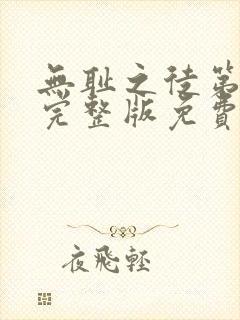 無耻之徒第
完整版免費
夜飛輕